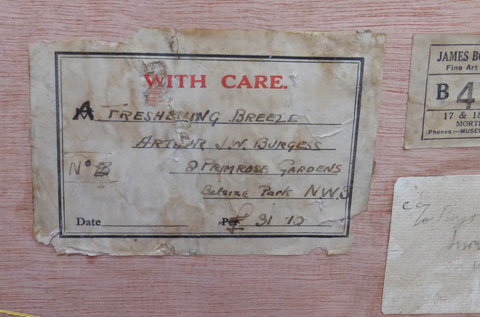 WITH CARE.
A FRESHENING BREEZE
ARTHUR J.W. BURGESS
Nº 2 2 PRIMROSE GARDENS
Belsize Park N.W.3
Date Per £ 31 10
JAMES BO
Fine Art
B 4
17 & 18
MORT
Phones:—MUSE